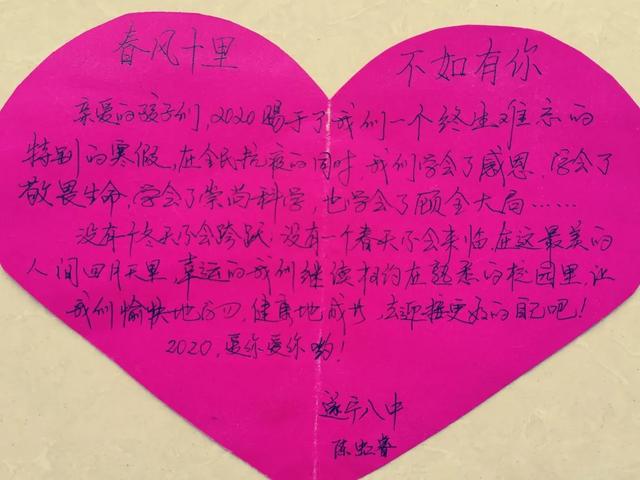 春风十里
不如有你
亲爱的孩子们,2020赐予了我们一个终生难忘的
特别的寒假,在全民抗疫的同时,我们学会了感恩,学会了
敬畏生命,学会了崇尚科学,也学会了顾全大局……
没有个冬天不会跨跃,没有一个春天不会来临,在这最美的
人间四月天里,幸运的我们继续相约在熟悉的校园里,让
我们愉快地,健康地成长,去迎接更好的自己吧!
2020,爱你爱你哟!
遂宁八中
陈虹睿